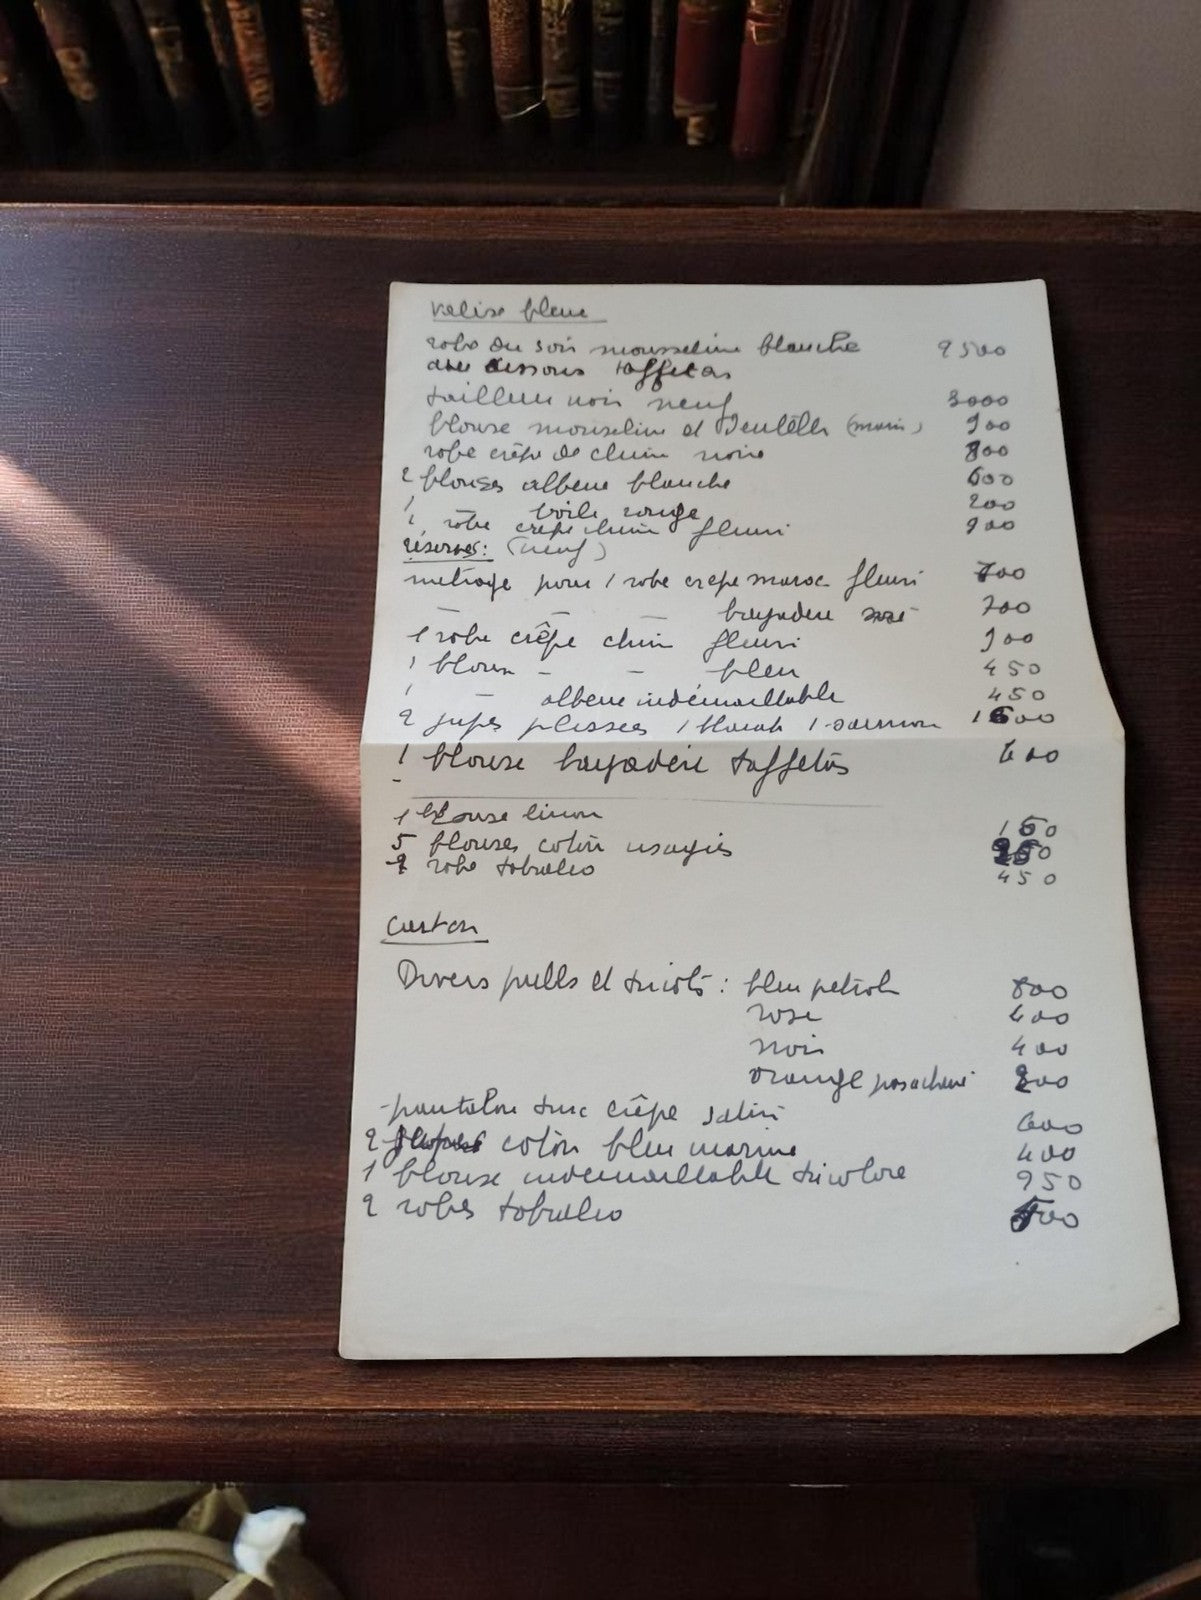 valise bleue
robe du soir mousseline blanche 9500
avec dessous taffetas
tailleur noir neuf 3000
blouse mousseline et Dentelle (main) 900
robe crêpe de chine noire 800
2 blouses albene blanche 600
1 — voile rouge 200
1 robe crêpe chine fleuri 900
réserves: (neuf)
métrage pour 1 robe crepe maroc fleuri 700
— — — bayadere 700
1 robe crêpe chine fleuri 900
1 blouse - - bleu 450
1 — albene indémaillable 450
2 jupes plissees 1 blanche 1 saumon 1600
1 blouse bayadère taffetas 600
-
1 blouse linon 150
5 blouses coton usagées
robe tobralco 450
carton
Divers pulls et tricots : bleu petrole 800
rose 400
noir 400
orange 300
-pantalon turc crêpe satin 600
2 coton bleu marine 400
1 blouse indemaillable tricolore 950
2 robes tobralco 500